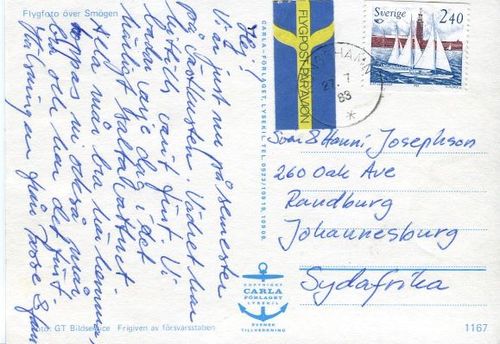 Flygfoto över Smögen
Hej,
Vi är just nu på semester
på västkusten. Vädret har
hittills varit fint. Vi
badar varje dag i det
härliga salta vattnet
Alla mår bra här hemma,
hoppas ni också mår
bra och har det fint
Hälsningar från
Foto: GT Bildservice Frigiven av försvarsstaben
CARLA-FÖRLAGET, LYSEKIL. TEL. 0523/109 19, 109 06.
FLYGPOST PAR AVION
Sverige 2.40
27. 7
83
Hanni Josephson
260 Oak Ave
Randburg
Johannesburg
Sydafrika
COPYRIGHT
CARLA
FÖRLAGET
LYSEKIL
SVENSK
TILLVERKNING
1167